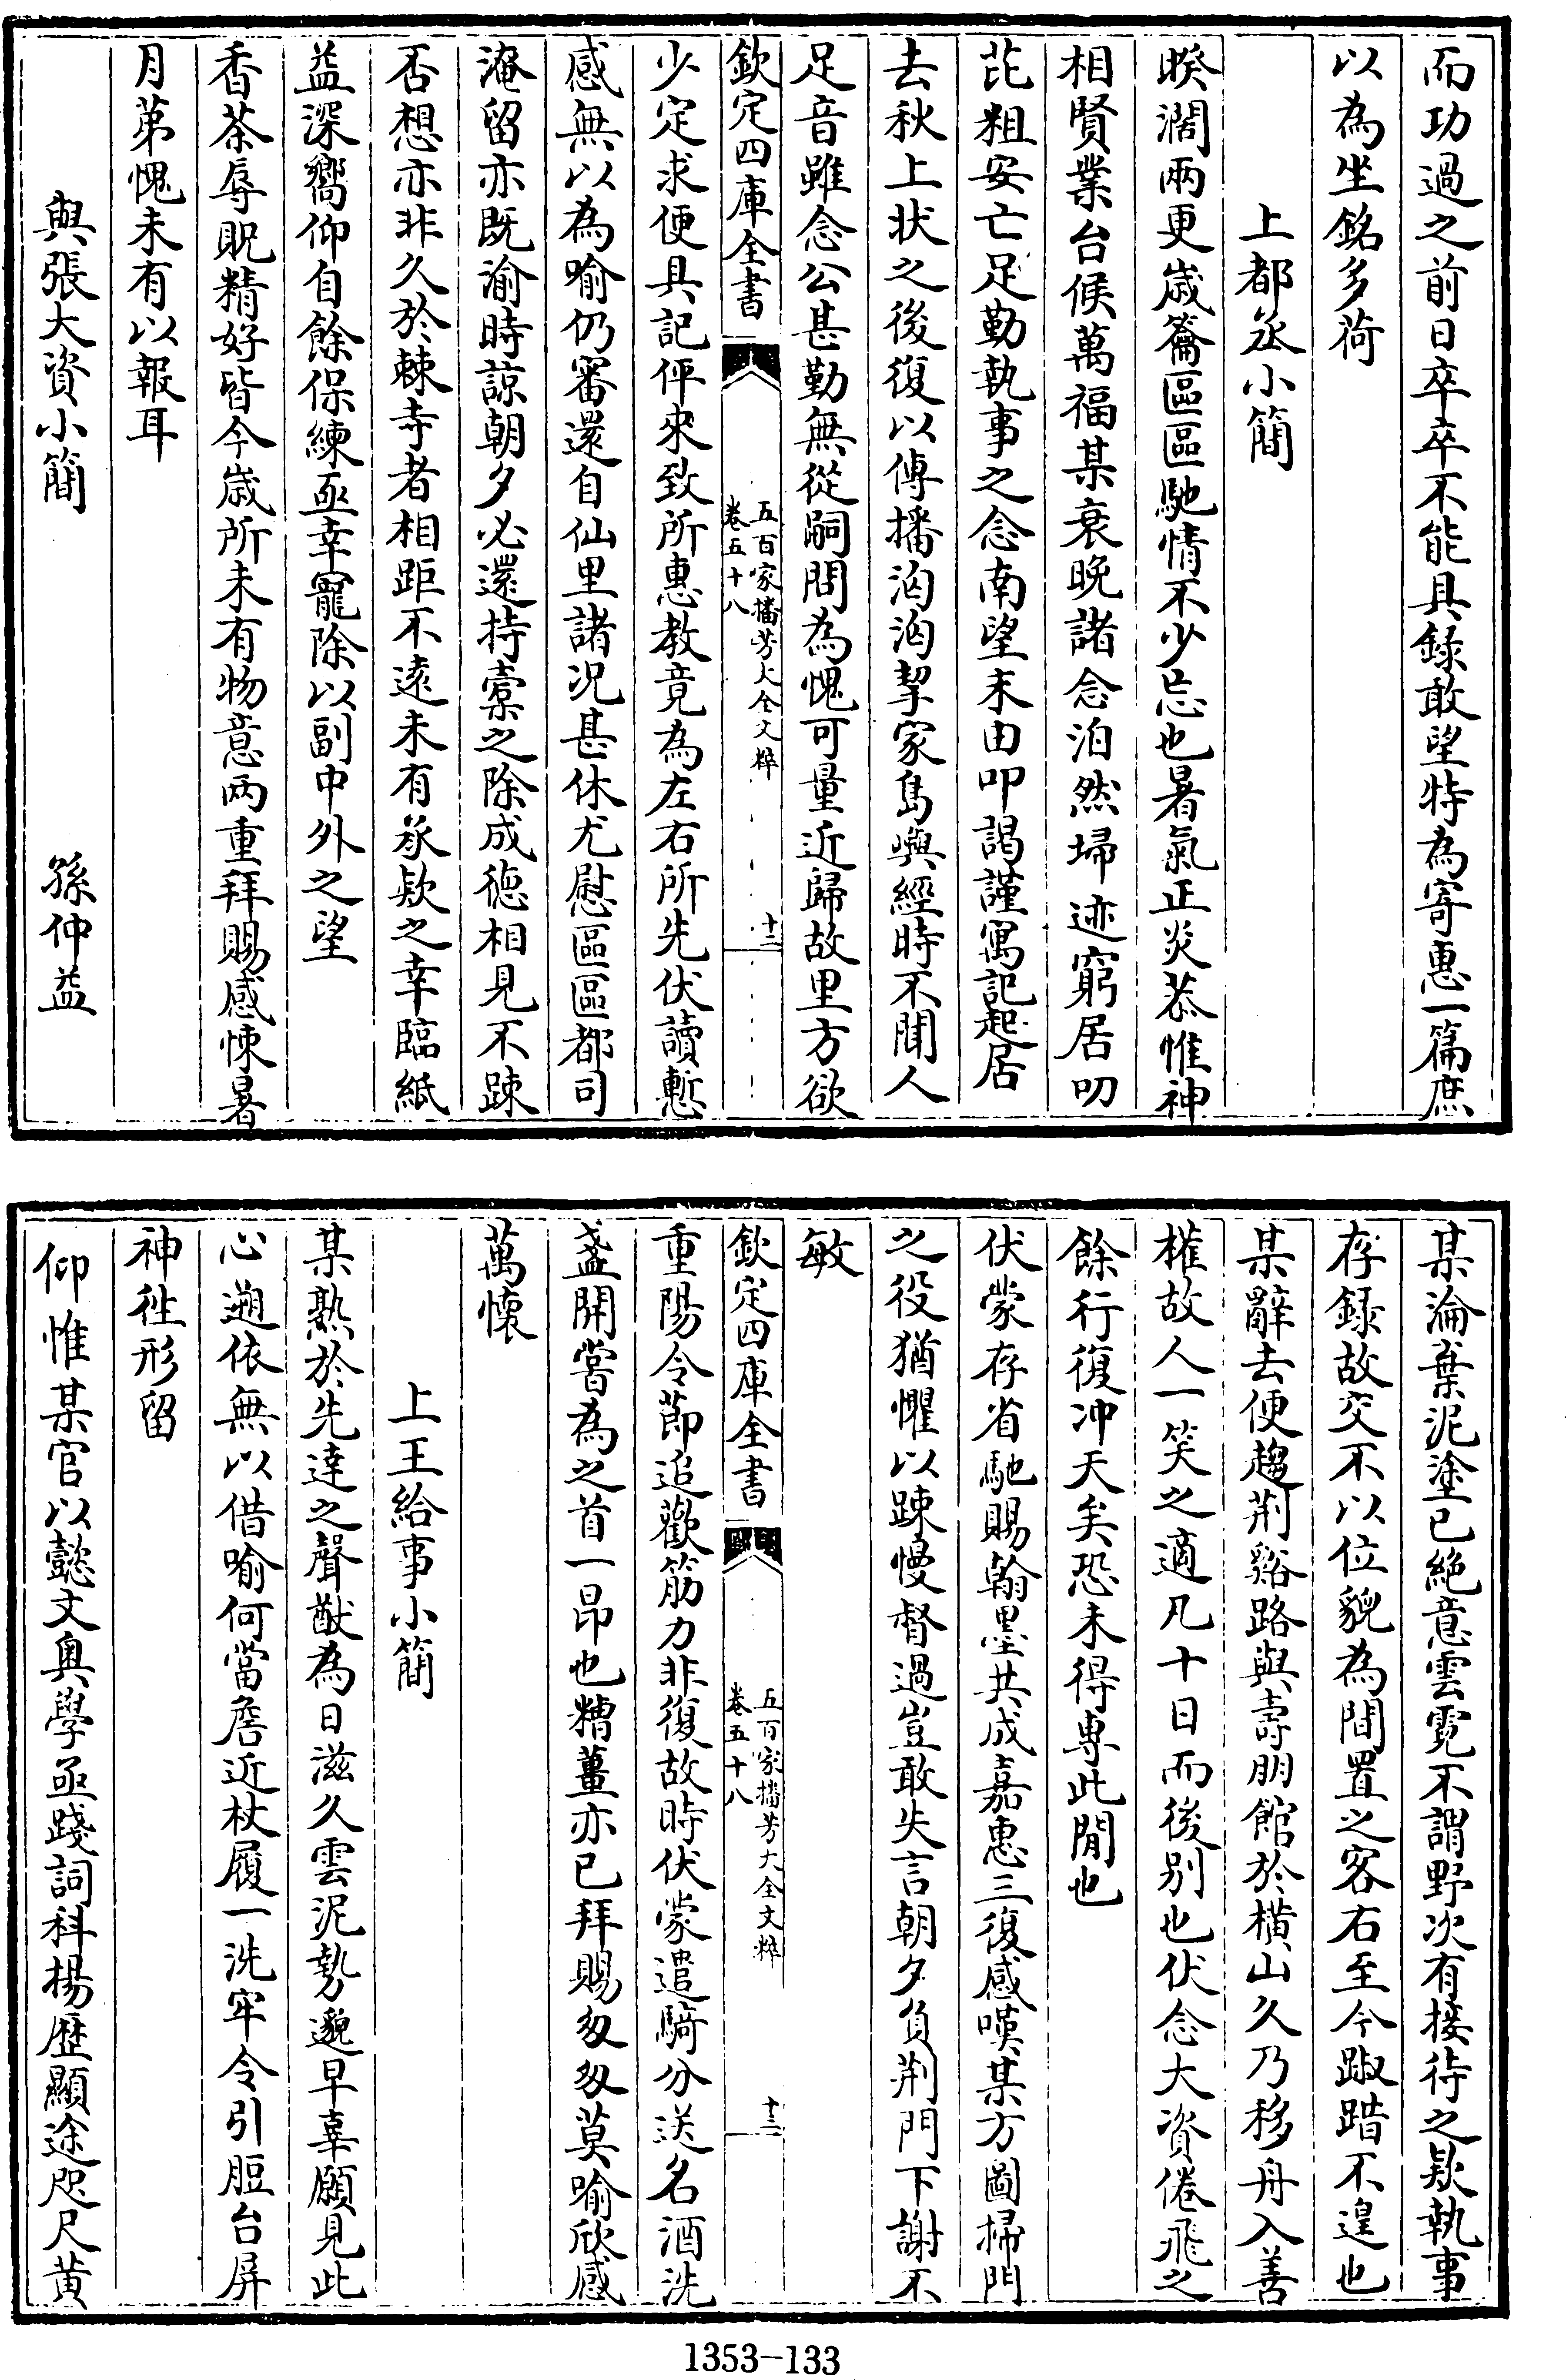 而功過之前日卒卒不能具錄敢望特為寄惠一篇庶
以為坐銘多荷
上都丞小簡
暌濶兩更歲籥區區馳情不少忘也暑氣正炎恭惟神
相賢業台候萬福某衰晚諸念泊然埽迹窮居叨
芘粗安亡足勤執事之念南望末由叩謁謹寓記起居
去秋上狀之後復以傳播洶洶挈家島嶼經時不聞人
足音雖念公甚勤無從嗣問為愧可量近歸故里方欲
欽定四庫全書
五百家播芳大全文粹
卷五十八
十二
少定求便具記伻來致所惠教竟為左右所先伏讀慙
感無以為喻仍審還自仙里諸况甚休尤慰區區都司
淹留亦既渝時諒朝夕必還持橐之除成德相見不踈
否想亦非久於棘寺者相距不遠未有承欵之幸臨紙
益深嚮仰自餘保練亟幸寵除以副中外之望
香茶辱貺精好皆今歲所未有物意兩重拜賜感悚暑
月第愧未有以報耳
與張大資小簡
孫仲益
某淪棄泥塗已絶意雲霓不謂野次有接待之欵執事
存録故交不以位貌為間置之客右至今踧踖不遑也
某辭去便趨荆谿路與壽朋館於横山久乃移舟入善
權故人一笑之適凡十日而後別也伏念大資倦飛之
餘行復冲天矣恐未得專此閒也
伏蒙存省馳賜翰墨共成嘉惠三復感嘆某方圖掃門
之役猶懼以踈慢督過豈敢失言朝夕負荆門下謝不
敏
欽定四庫全書
五百家播芳大全文粹
卷五十八
十三
重陽令節追歡筋力非復故時伏蒙遣騎分送名酒洗
盞開嘗為之首一昂也糟薑亦已拜賜匆匆莫喻欣感
萬懷
上王給事小簡
某熟於先達之聲猷為日滋久雲泥勢邈早辜願見此
心遡依無以借喻何當詹近杖履一洗牢令引脰台屏
神徃形留
仰惟某官以懿文奥學亟踐詞科揚歴顯途咫尺黄
1353-133